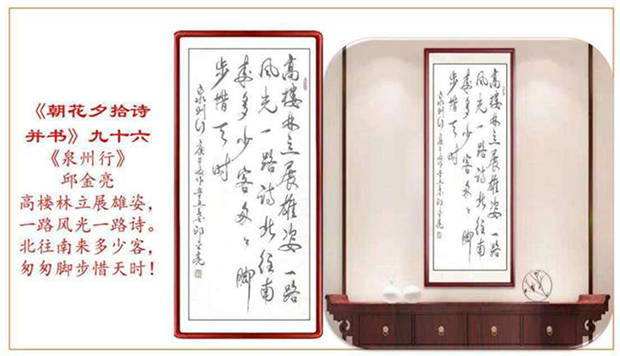 《朝花夕拾诗
并书》九十六
《泉州行》
邱金亮
高楼林立展雄姿，
一路风光一路诗。
北往南来多少客，
匆匆脚步惜天时！
高楼林立展雄姿一路
风光一路诗北往南
来多少客匆匆脚
步惜天时
泉州行
邱金亮
高楼林立展雄姿一路
风光一路诗北往南
来多少客匆匆脚
步惜天时
泉州行
邱金亮